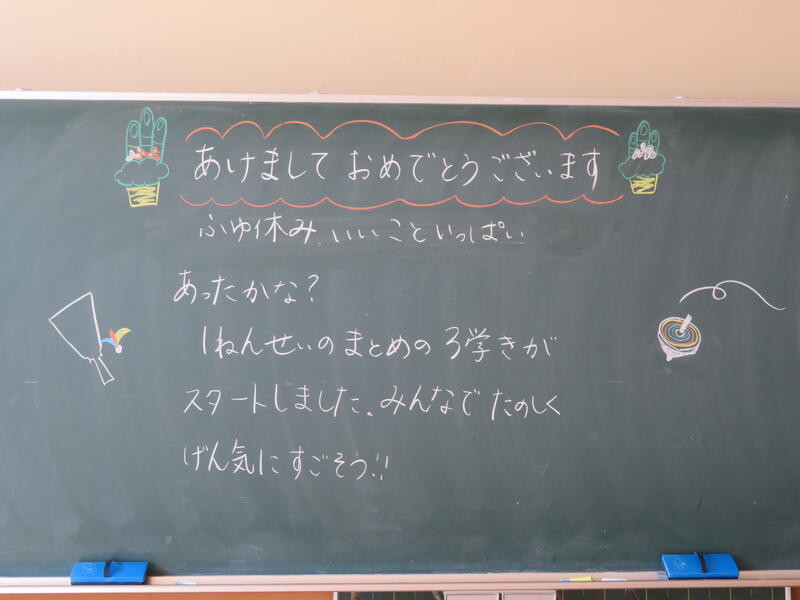 あけまして おめでとうございます
ふゆ休み、いいこといっぱい
あったかな?
1ねんせいのまとめの3学きが
スタートしました。みんなでたのしく
げん気にすごそう!!